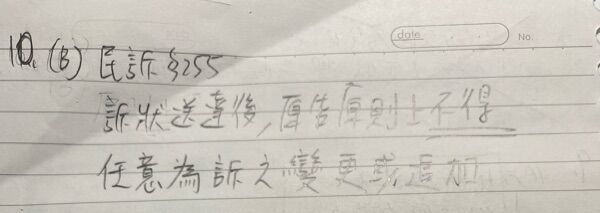 date
No.
10. (B) 民訴§255
訴狀送達後,原告原則上不得
任意為訴之變更或追加